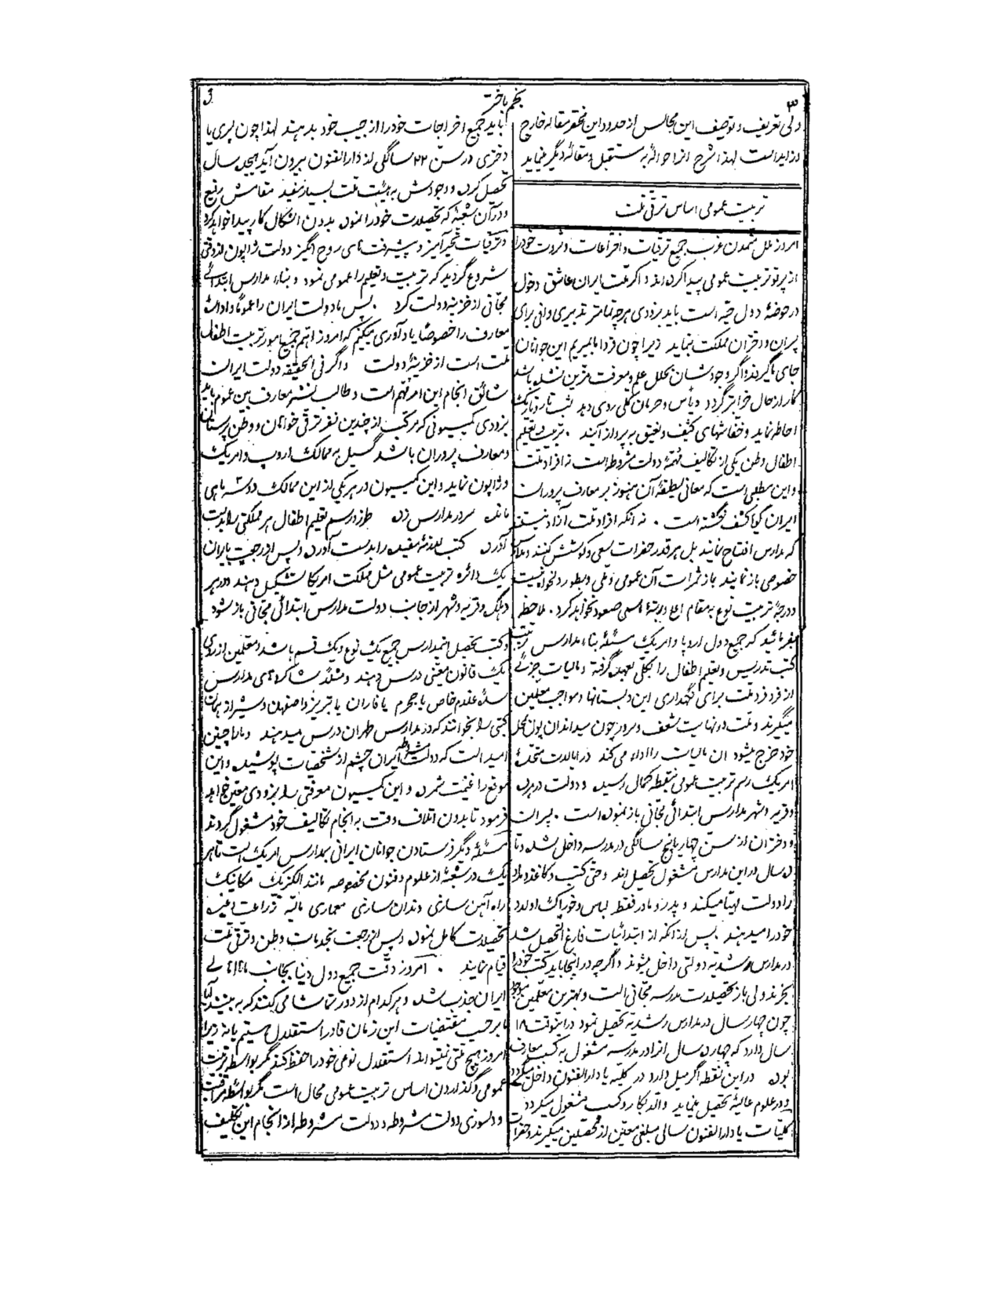 ۳
نجم باختر
ولی تعریف و توصیف این مجالس از حدود این مختصر مقاله خارج
و زاید است لهذا شرح آنرا حواله به مستقبل و مقالهٔ دیگر مینماید
تربیت عمومی اساس ترقی ملت
امروز ملل متمدن غرب جمیع ترقیات و اختراعات و ثروت خود را
از پرتو تربیت عمومی پیدا کرده‌اند و اگر ملت ایران عاشق دخول
در حوضهٔ دول حیّه است باید بزودی هر چه تمامتر تدبیری وافی برای
پسران و دختران مملکت بنماید زیرا چون فردا ما بمیریم این جوانان
جای ما گیرند و اگر وجودشان بحلل علم و معرفت مزین نشده باشد
کار از حال خرابتر گردد و یأس و حرمان کلی روی دهد شب تار و تاریک
احاطه نماید و خفاشهای کثیف و نعیق به پرواز آیند . تربیت و تعلیم
اطفال وطن یکی از تکالیف مهمهٔ دولت مشروطه است نه افراد ملت
و این مطلبی است که معانی لطیفهٔ آن هنوز بر معارف پروران
ایران گویا کشف نگشته است . نه آنکه افراد ملت آزاد نیستند
که مدارس افتتاح نمایند بل هر قدر حضرات سعی و کوشش کنند و مدارس
خصوصی باز نمایند باز ثمرات آن عمومی و ملی و بطور دلخواه نیست
و درجهٔ تربیت نوع به مقام اعلا و رتبهٔ اسمی صعود نخواهد کرد . ملاحظه
بفرمائید که جمیع دول اروپا و امریک مسئلهٔ بناء مدارس ترتیب
کتب تدریس و تعلیم اطفال را بکلی بعهده گرفته و مالیات جزئی
از فرد فرد ملت برای نگهداری این دبستانها و مواجب معلمین
میگیرند و ملت در نهایت شعف و سرور چون میدانند پول بمحل
خود خرج میشود آن مالیات را اداء می کند در ایالات متحدهٔ
امریک رسم تربیت عمومی بنقطهٔ کمال رسیده و دولت در هر ده
و قریه و شهر مدارس ابتدائی مجانی باز نموده است . پسران
و دختران از سن چهار یا پنج سالگی در مدرسه داخل شده و تا
ده سال در این مدارس مشغول تحصیل‌اند و حتی کتب و کاغذ و مداد
را دولت مهیا میکند و پدر و مادر فقط لباس و خوراک اولاد
خود را میدهند . پس از آنکه از ابتدائیات فارغ التحصیل شد
در مدارس رشدیهٔ دولتی داخل میشوند و اگرچه در اینجا باید کتب خود را
بخرند ولی باز تحصیلات مدرسه مجانی است و بهترین معلمین موجود
چون چهار سال در مدارس رشدیه تحصیل نمود در اینوقت ۱۸
سال دارد که چهارده سال آنرا در مدرسه مشغول به کسب معارف
بوده در این نقطه اگر میل دارد در کلیه یا دارالفنون داخل میگردد
و در علوم عالیهٔ تحصیل مینماید والا بکار و کسب مشغول میگردد
کلیات یا دارالفنون سالی مبلغی معین از محصلین میگیرند و حضرات
باید جمیع اخراجات خود را از جیب خود بدهند لهذا چون پسری یا
دختری در سن ۲۲ سالگی از دارالفنون بیرون آید هیجده سال
تحصیل کرده و وجودش به هیئت ملت بسیار مفید مقامش رفیع
و در آن شعبهٔ که تحصیلات خود را نموده بدون اشکال کار پیدا خواهد کرد
ترقیات تحیرآمیز و پیشرفتهای روح انگیز دولت ژاپون از وقتی
شروع گردید که تربیت و تعلیم را عمومی نمود و بناء مدارس ابتدائی
مجانی از خزینهٔ دولت کرد . پس ما دولت ایران را عموماً و ادارهٔ
معارف را خصوصاً یادآوری میکنیم که امروز اهم جمیع امور تربیت اطفال
ملت است از خزینهٔ دولت و اگر فی الحقیقه دولت ایران
شائق انجام این امر مهم است و طالب نشر معارف بین عموم باید
بزودی کمیسیونی که مرکب از چندین نفر ترقی خواهان و وطن پرستان
و معارف پروران باشد گسیل به ممالک اروپ و امریک
و ژاپون نماید و این کمیسیون در هر یکی از این ممالک دو سه ماهی
مانده سر در مدارس زده طرز و رسم تعلیم اطفال هر مملکتی را بدست
آورده کتب لازمهٔ مفیده را بدست آورده و پس از رجعت بایران
یک دائرهٔ تربیت عمومی مثل مملکت امریکا تشکیل دهند و در هر
دهکده و قریه و شهر از جانب دولت مدارس ابتدائی مجانی باز شود
و کتب تحصیل این مدارس جمیع یک نوع و یک قسم باشد و معلمین از روی
یک قانون معینی درس دهند و شاگردهای مدارس
علوم خاص یا جهرم یا قاران یا تبریز و اصفهان و شیراز همان
کتبی را بخوانند که در مدارس طهران درس میدهند و ما را چنین
امید است که دولت مشروطهٔ ایران چشم از شخصیات پوشیده و این
موقع را غنیمت شمرده و این کمیسیون معرفتی را بزودی معین خواهد
فرمود تا بدون اتلاف وقت به انجام تکالیف خود مشغول گردند
مسئلهٔ دیگر فرستادن جوانان ایرانی بمدارس امریک است تا هر
یک در شعبهٔ از علوم و فنون مخصوصه مانند الکتریک مکانیک
راه آهن سازی دندان سازی معماری مالیه زراعت و غیره
تحصیلات کامل نموده و پس از رجعت بخدمات وطن و ترقی ملت
قیام نمایند . امروز دقت جمیع دول دنیا بجانب
ایران جذب شده و هر کدام از دور تماشا می کنند که به بینند آیا
ما برحسب مقتضیات این زمان قادر استقلال هستیم یا نه زیرا
امروز هیچ ملتی نمیتواند استقلال نوعی خود را حفظ کند مگر بواسطهٔ تربیت
عمومی و گذاردن اساس تربیت عمومی محال است مگر بواسطهٔ مراقبت
و دلسوزی دولت مشروطه و دولت مشروطه از انجام این تکلیف